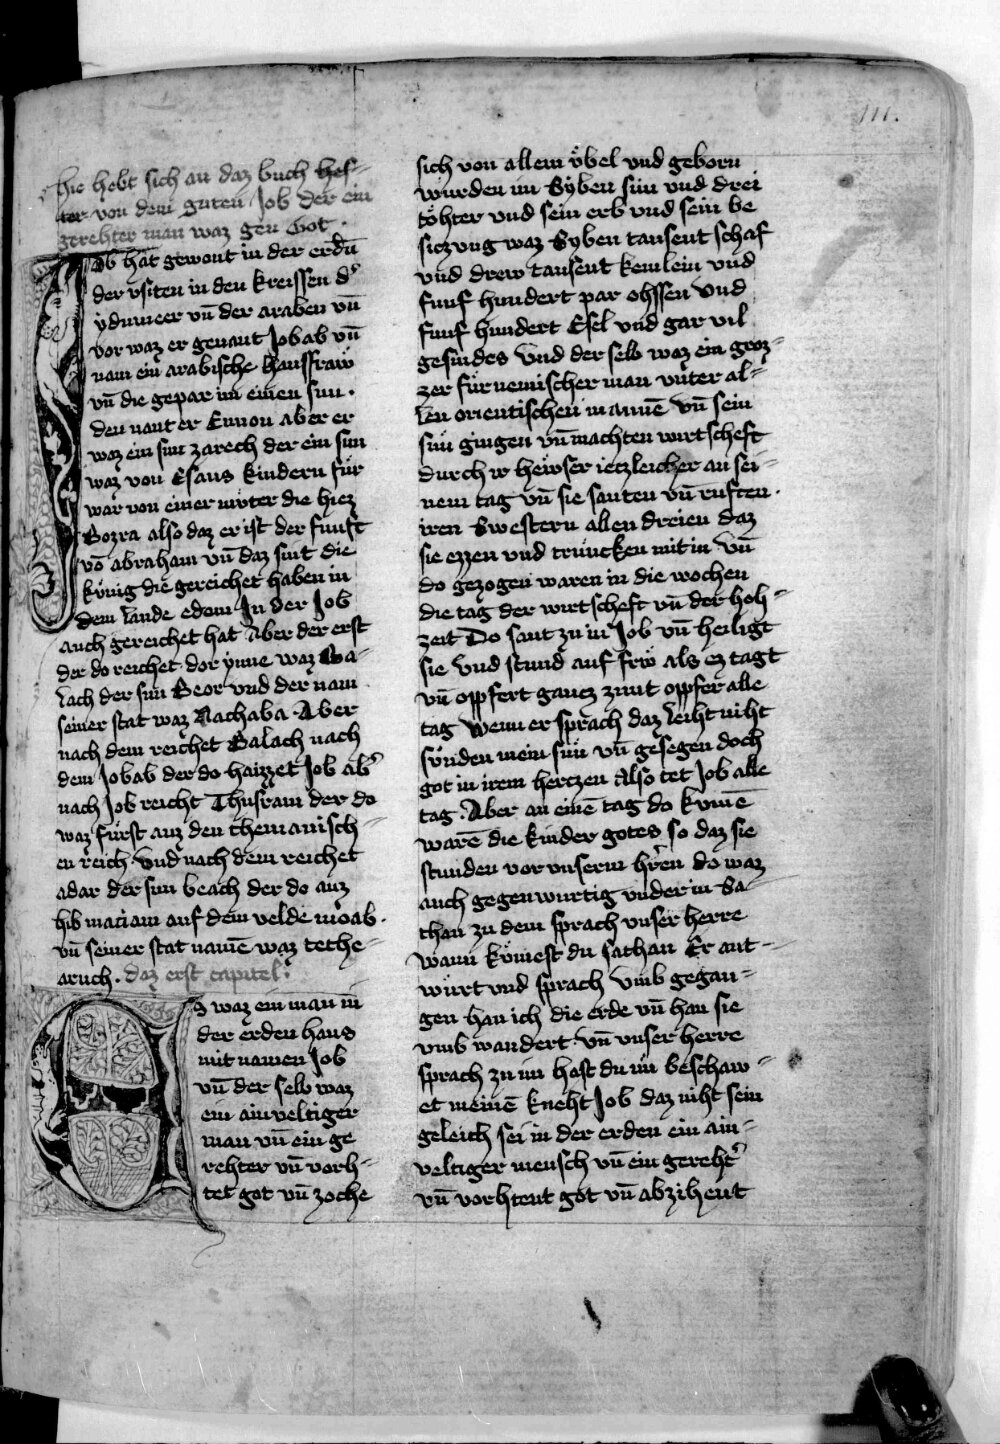 111.
hie hebt sich an daz buch hes-
ter von dem guten Job der ein
gerehter man waz gen Got.
Job hat gewont in der erdn̄
der vsiten in den kreissen d'
ydumeer vn̄ der araben vn̄
vor waz er genant Jobab vn̄
nam ein arabische hausfraw
vn̄ die gepar im einen sun.
den nant er Ennon aber er
waz ein sun zarech der ein sun
waz von Esaus kindern für
war von einer muͦter die hiez
Bozra also daz er ist der funft
vō abraham vn̄ daz sint die
kuͤnig die gereichet haben in
dem lande edom In der Job
auch gereichet hat Aber der erst
der do reichet dor ynne waz Ba-
lach der sun Beor vnd der nam
seiner stat waz Nachaba. Aber
nach dem reichet Balach nach
dem Jobab der do haizzet Job ab'
nach Job reicht Thusram der do
waz fuͤrst auz den themanisch-
en reich. Vnd nach dem reichet
adar der sun beach der do auz
hib madiam auf dem velde moab.
vn̄ seiner stat namē waz tethe-
aruch. daz erst capitel.
Es waz ein man in
der erden haus
mit namen Job
vn̄ der selb waz
ein ainveltiger
man vn̄ ein ge
rehter vn̄ vorh-
tet got vn̄ zoche
sich von allem vͤbel vnd geborn
wurden im Syben sün vnd drei
toͤhter vnd sein erb vnd sein be
siczung waz Syben tausent schaf
vnd drew tausent kemlein vnd
funf hundert par ohssen vnd
funf hundert Esel vnd gar vil
gesindes Vnd der selb waz ein groz-
zer fuͤrnemischer man vnter al-
len orientischen mannē vn̄ sein
suͤn gingen vn̄ machten wirtscheft
durch ir hewser ieczleicher an sei-
nem tag vn̄ sie santen vn̄ ruften.
iren Swestern allen dreien daz
sie ezzen vnd truncken mit in vn̄
do gezogen waren in die wochen
die tag der wirtscheft vn̄ der hoh-
zeit Do sant zu in Job vn̄ heiligt
sie vnd stund auf frw als ez tagt
vn̄ oppfert gancz zunt oppfer alle
tag wenn er sprach daz leiht niht
suͤnden mein suͤn vn̄ gesegen doch
got in irem hertzen Also tet Job alle
tag. Aber an einē tag do kumē
warē die kinder gotes so daz sie
stunden vor vnserm hr̄en do waz
auch gegenwurtig vnder in Sa-
than zu dem sprach vnser herre
wann kuͤmest du sathan Er ant-
wuͤrt vnd sprach Vmb gegan-
gen han ich die erde vn̄ han sie
vmb wandert vn̄ vnser herre
sprach zu im hast du iü beschaw-
et meinē kneht Job daz niht sein
geleich sei in der erden ein ain-
veltiger mensch vn̄ ein gereht'
vn̄ vorhtent got vn̄ abzihent